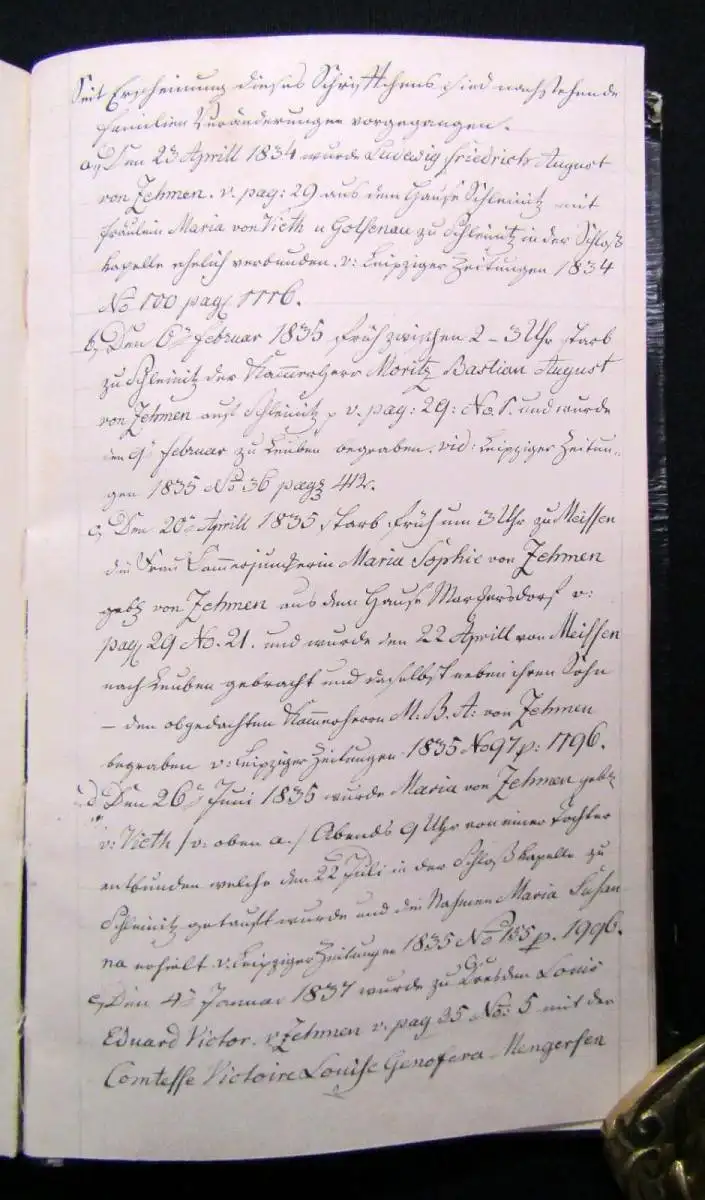 Seit Erscheinung dieses Schriftchens sind nachstehende
Familien Veränderungen vorgegangen.
a, Den 23 Aprill 1834 wurde Ludewig Friedrich August
von Zehmen. v. pag: 29 aus dem Hause Schleinitz mit
Fräulein Maria von Vieth u Golsenau zu Schleinitz in der Schloß
kapelle ehelich verbunden. v: Leipziger Zeitungen 1834
No 100 pag. 1116.
b, Den 6 Februar 1835 früh zwischen 2 – 3 Uhr starb
zu Schleinitz der Kammerherr Moritz Bastian August
von Zehmen auf Schleinitz p v. pag: 29: No. und wurde
den 9 Februar zu Leuben begraben. vid: Leipziger Zeitun-
gen 1835 No 36 pag 412.
c, Den 20 Aprill 1835 starb früh um 3 Uhr zu Meissen
die Frau Cammerjunkerin Maria Sophie von Zehmen
geb. von Zehmen aus dem Hause Markersdorf v:
pag 29 No. 21. und wurde den 22 Aprill von Meissen
nach Leuben gebracht und daselbst neben ihren Sohn
– den obgedachten Kammerherrn M: B. A: von Zehmen
begraben v: Leipziger Zeitungen 1835 No 97 p: 1196.
d, Den 26 Juni 1835 wurde Maria von Zehmen geb.
v: Vieth /v: oben a./ Abends 9 Uhr von einer Tochter
entbunden welche den 22 Juli in der Schloß kapelle zu
Schleinitz getauft wurde und die Nahmen Maria Susan
na erhielt v. Leipziger Zeitungen 1835 No 155 p. 1996.
e, Den 4 Januar 1837 wurde zu Dresden Louis
Eduard Victor. v Zehmen v. pag 35 No: 5 mit der
Comtesse Victoire Louise Genofeva Mengersen